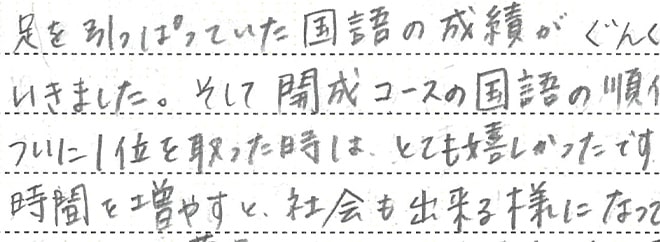 足を引っぱっていた国語の成績がぐんぐ
いきました。そして開成コースの国語の順
ついに1位を取った時は、とても嬉しかったです
時間を増やすと、社会も出来る様になって